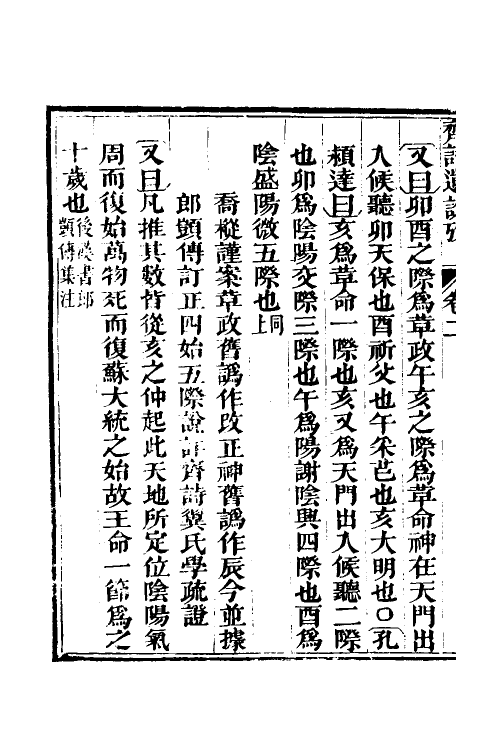 齊詩遺說攷 卷二
又曰卯酉之際爲革政午亥之際爲革命神在天門出
入候聽卯天保也酉祈父也午采芑也亥大明也〇孔
穎達曰亥爲革命一際也亥又爲天門出入候聽二際
也卯爲陰陽交際三際也午爲陽謝陰興四際也酉爲
陰盛陽微五際也同上
喬樅謹案革政舊譌作改正神舊譌作辰今並據
郎顗傳訂正四始五際說詳齊詩翼氏學疏證
又曰凡推其數皆從亥之仲起此天地所定位陰陽氣
周而復始萬物死而復蘇大統之始故王命一節爲之
十歲也後漢書郎顗傳集注